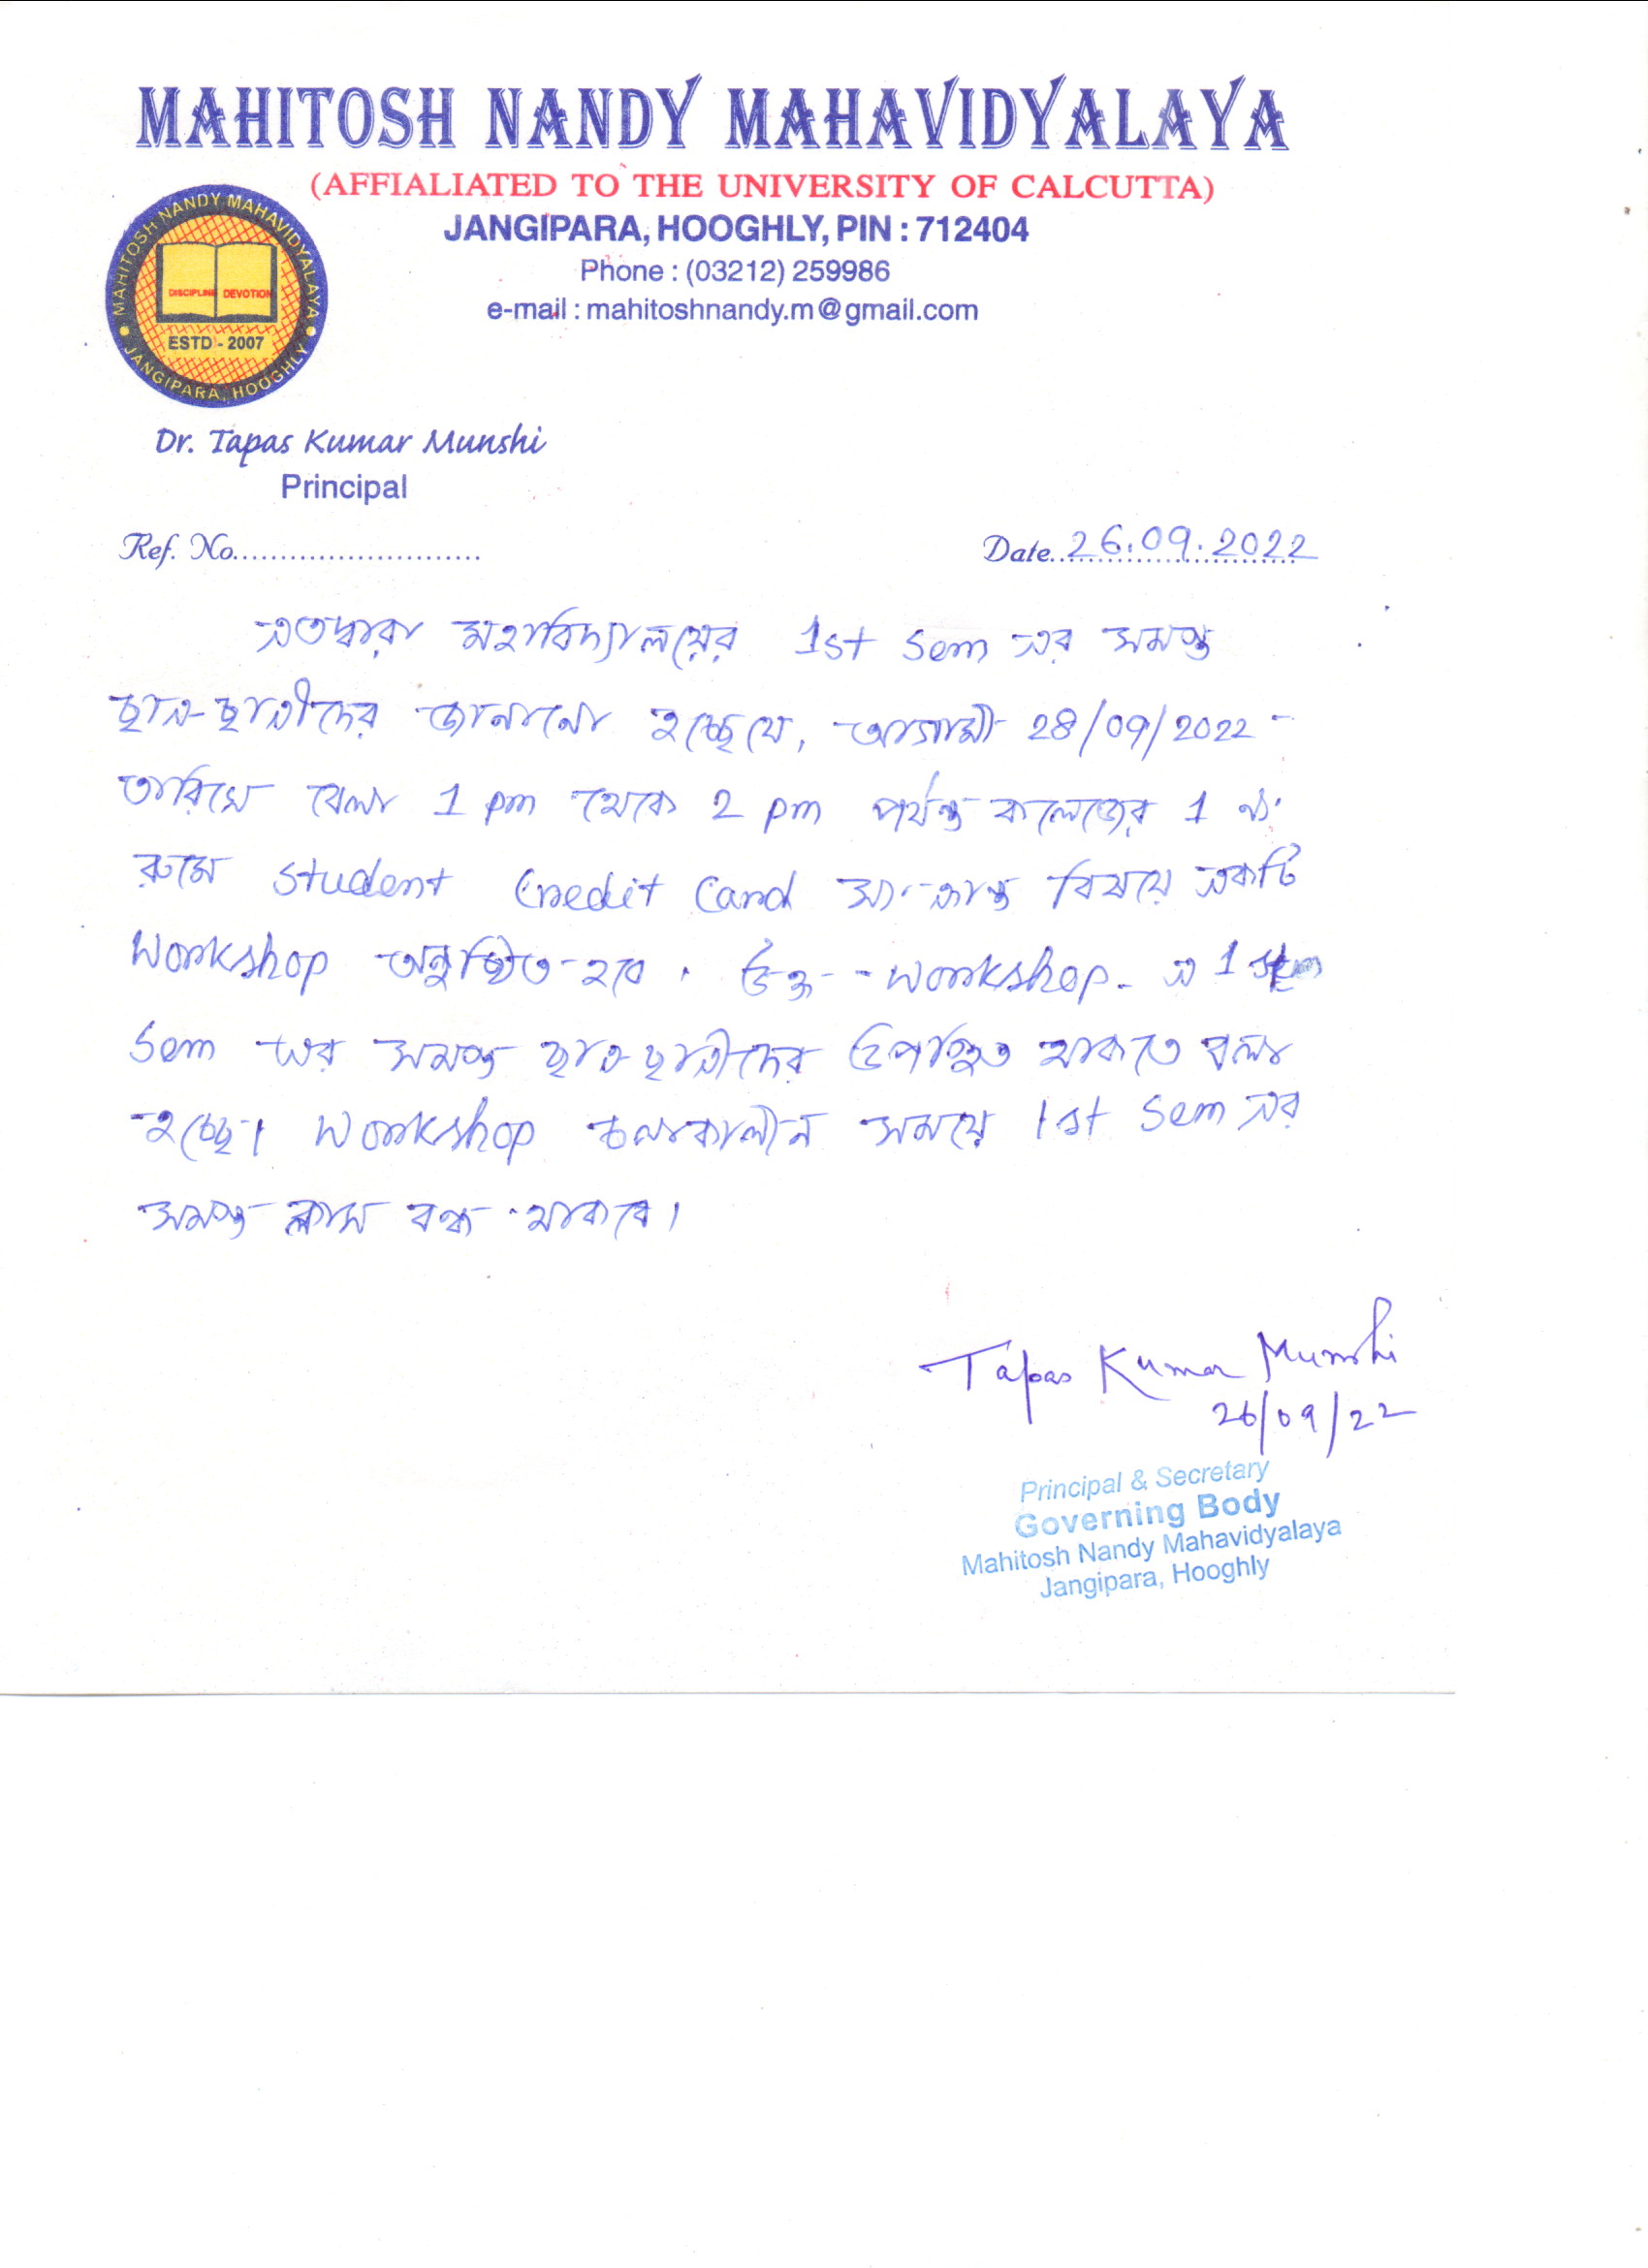 MAHITOSH NANDY MAHAVIDYALAYA
(AFFIALIATED TO THE UNIVERSITY OF CALCUTTA)
JANGIPARA, HOOGHLY, PIN : 712404
Phone : (03212) 259986
e-mail : mahitoshnandy.m@gmail.com
MAHITOSH NANDY MAHAVIDYALAYA
DISCIPLINE DEVOTION
ESTD - 2007
JANGIPARA, HOOGHLY
Dr. Tapas Kumar Munshi
Principal
Ref. No..........................
Date..26.09.2022
এতদ্বারা মহাবিদ্যালয়ের 1st Sem এর সমস্ত
ছাত্র-ছাত্রীদের জানানো হচ্ছে যে, আগামী 28/09/2022
তারিখে বেলা 1 pm থেকে 2 pm পর্যন্ত কলেজের 1 নং
রুমে Student Credit Card সংক্রান্ত বিষয়ে একটি
Workshop অনুষ্ঠিত হবে। উক্ত Workshop এ 1st
Sem এর সমস্ত ছাত্র-ছাত্রীদের উপস্থিত থাকতে বলা
হচ্ছে। Workshop চলাকালীন সময়ে 1st Sem এর
সমস্ত ক্লাস বন্ধ থাকবে।
Tapas Kumar Munshi
26/09/22
Principal & Secretary
Governing Body
Mahitosh Nandy Mahavidyalaya
Jangipara, Hooghly